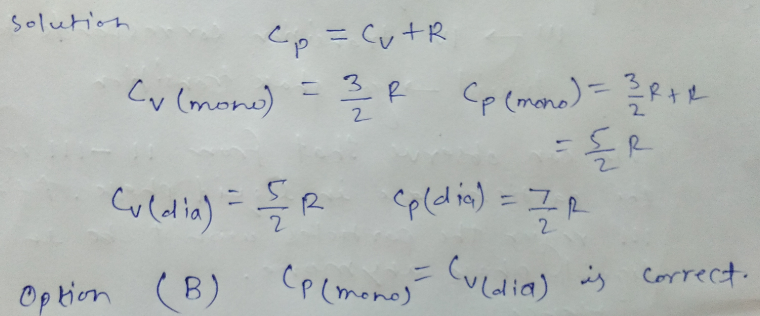 Solution
Cp = Cv + R
Cv (mono) = 3/2 R Cp (mono) = 3/2 R + R
= 5/2 R
Cv (dia) = 5/2 R Cp (dia) = 7/2 R
Option (B) Cp (mono) = Cv (dia) is correct.